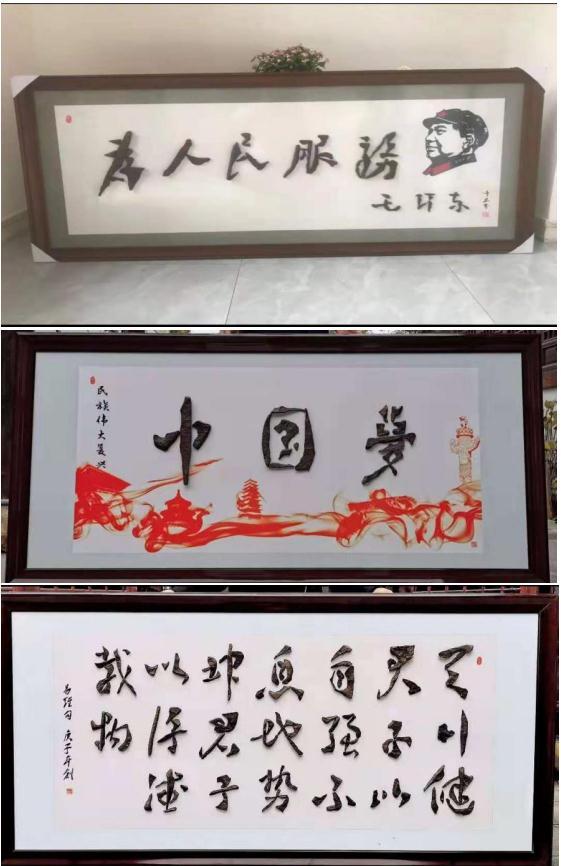 为人民服務
毛泽东
民族伟大复兴
中国梦
天行健
君子以
自强不
息地势
坤君子
以厚德
载物
易经句 庚子年创